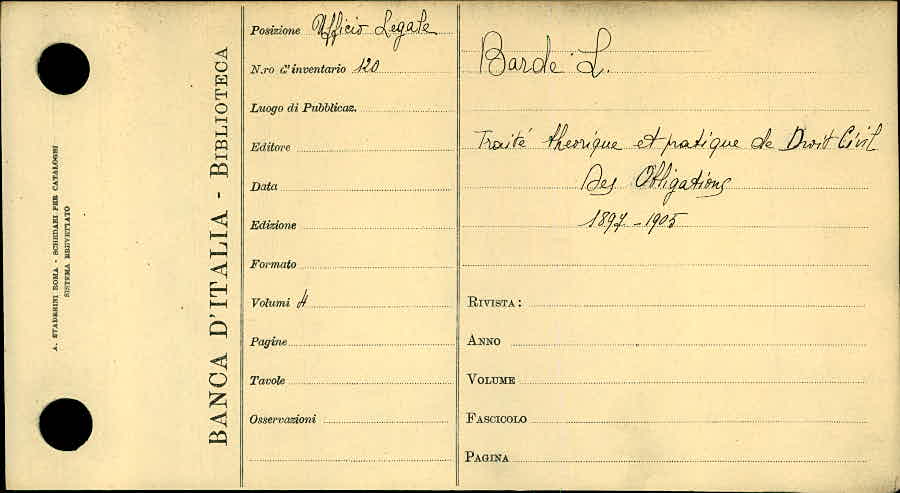 A. STADERINI ROMA - SCHEDARI PER CATALOGHI
SISTEMA BREVETTATO
BANCA D'ITALIA - BIBLIOTECA
Posizione Ufficio Legale
N.ro d'inventario 120
Luogo di Pubblicaz.
Editore
Data
Edizione
Formato
Volumi 4
Pagine
Tavole
Osservazioni
Barde L.
Traité theorique et pratique de Droit Civil
Des Obligations
1897 - 1905
RIVISTA:
ANNO
VOLUME
FASCICOLO
PAGINA